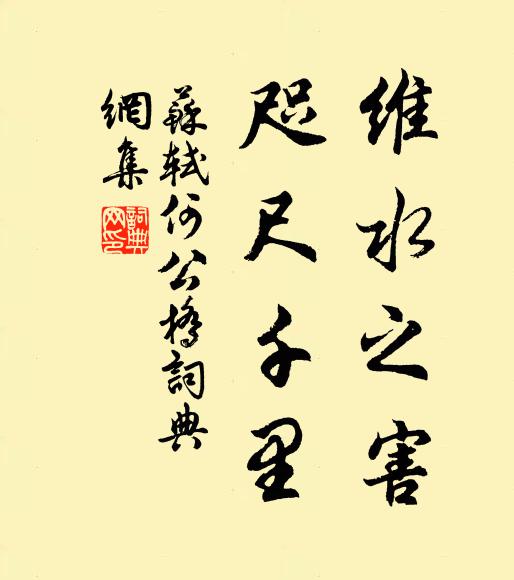 維水之害
咫尺千里
蘇軾何公橋詞典
網集
詞典網印